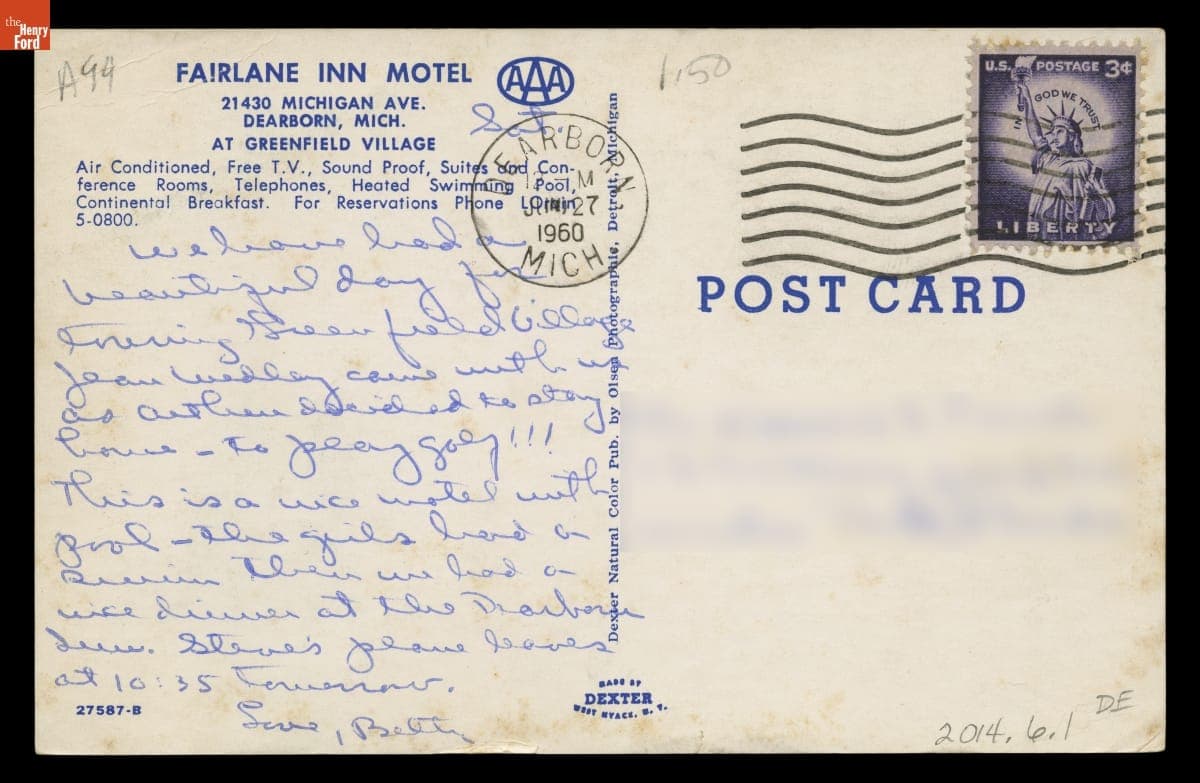 the Henry Ford
A94
FA!RLANE INN MOTEL
AAA
21430 MICHIGAN AVE.
DEARBORN, MICH.
AT GREENFIELD VILLAGE
Air Conditioned, Free T.V., Sound Proof, Suites and Con-
ference Rooms, Telephones, Heated Swimming Pool,
Continental Breakfast. For Reservations Phone LOrain
5-0800.
Sat.
We have had a
beautiful day for
Touring Greenfield Village
Jean Medley came with us
as Arthur decided to stay
home – to play golf!!!
This is a nice motel with
pool – the girls had a
swim Then we had a
nice dinner at the Dearborn
Inn. Steve's plane leaves
at 10:35 Tomorrow.
Love, Betty
27587-B
Dexter Natural Color Pub. by Olsen Photographic, Detroit, Michigan
MADE BY
DEXTER
WEST NYACK, N. Y.
1.50
DEARBORN
27
1960
MICH
U.S. POSTAGE 3¢
IN GOD WE TRUST
LIBERTY
POST CARD
2014.6.1
DE